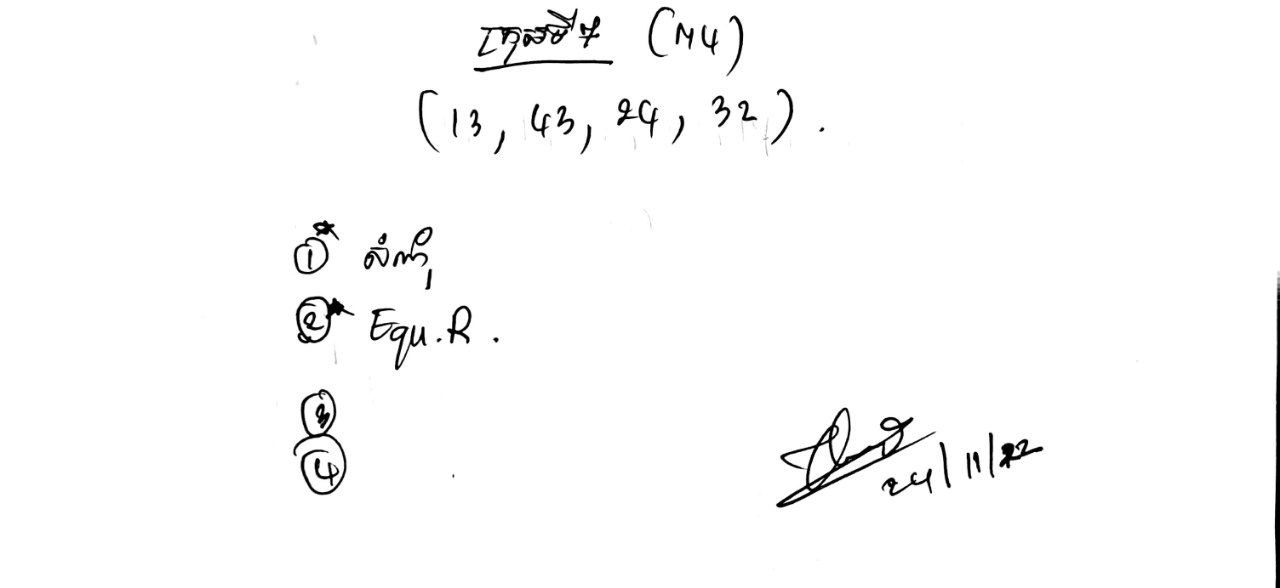 ក្រុមទី 7 (M4)
(13, 43, 24, 32).
①* សំណុំ
②* Equ.R.
③
④
24/11/22